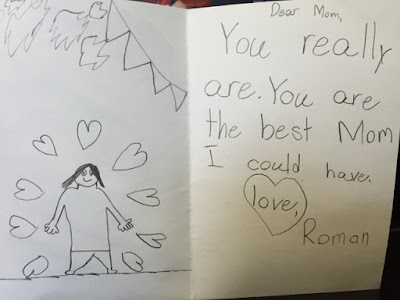 Dear Mom,
You really
are. You are
the best Mom
I could have.
love,
Roman